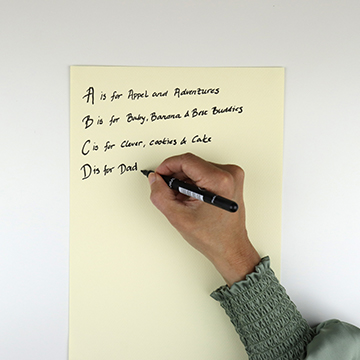 A is for Appel and Adventures
B is for Baby, Banana & Best Buddies
C is for Clever, cookies & Cake
D is for Dad